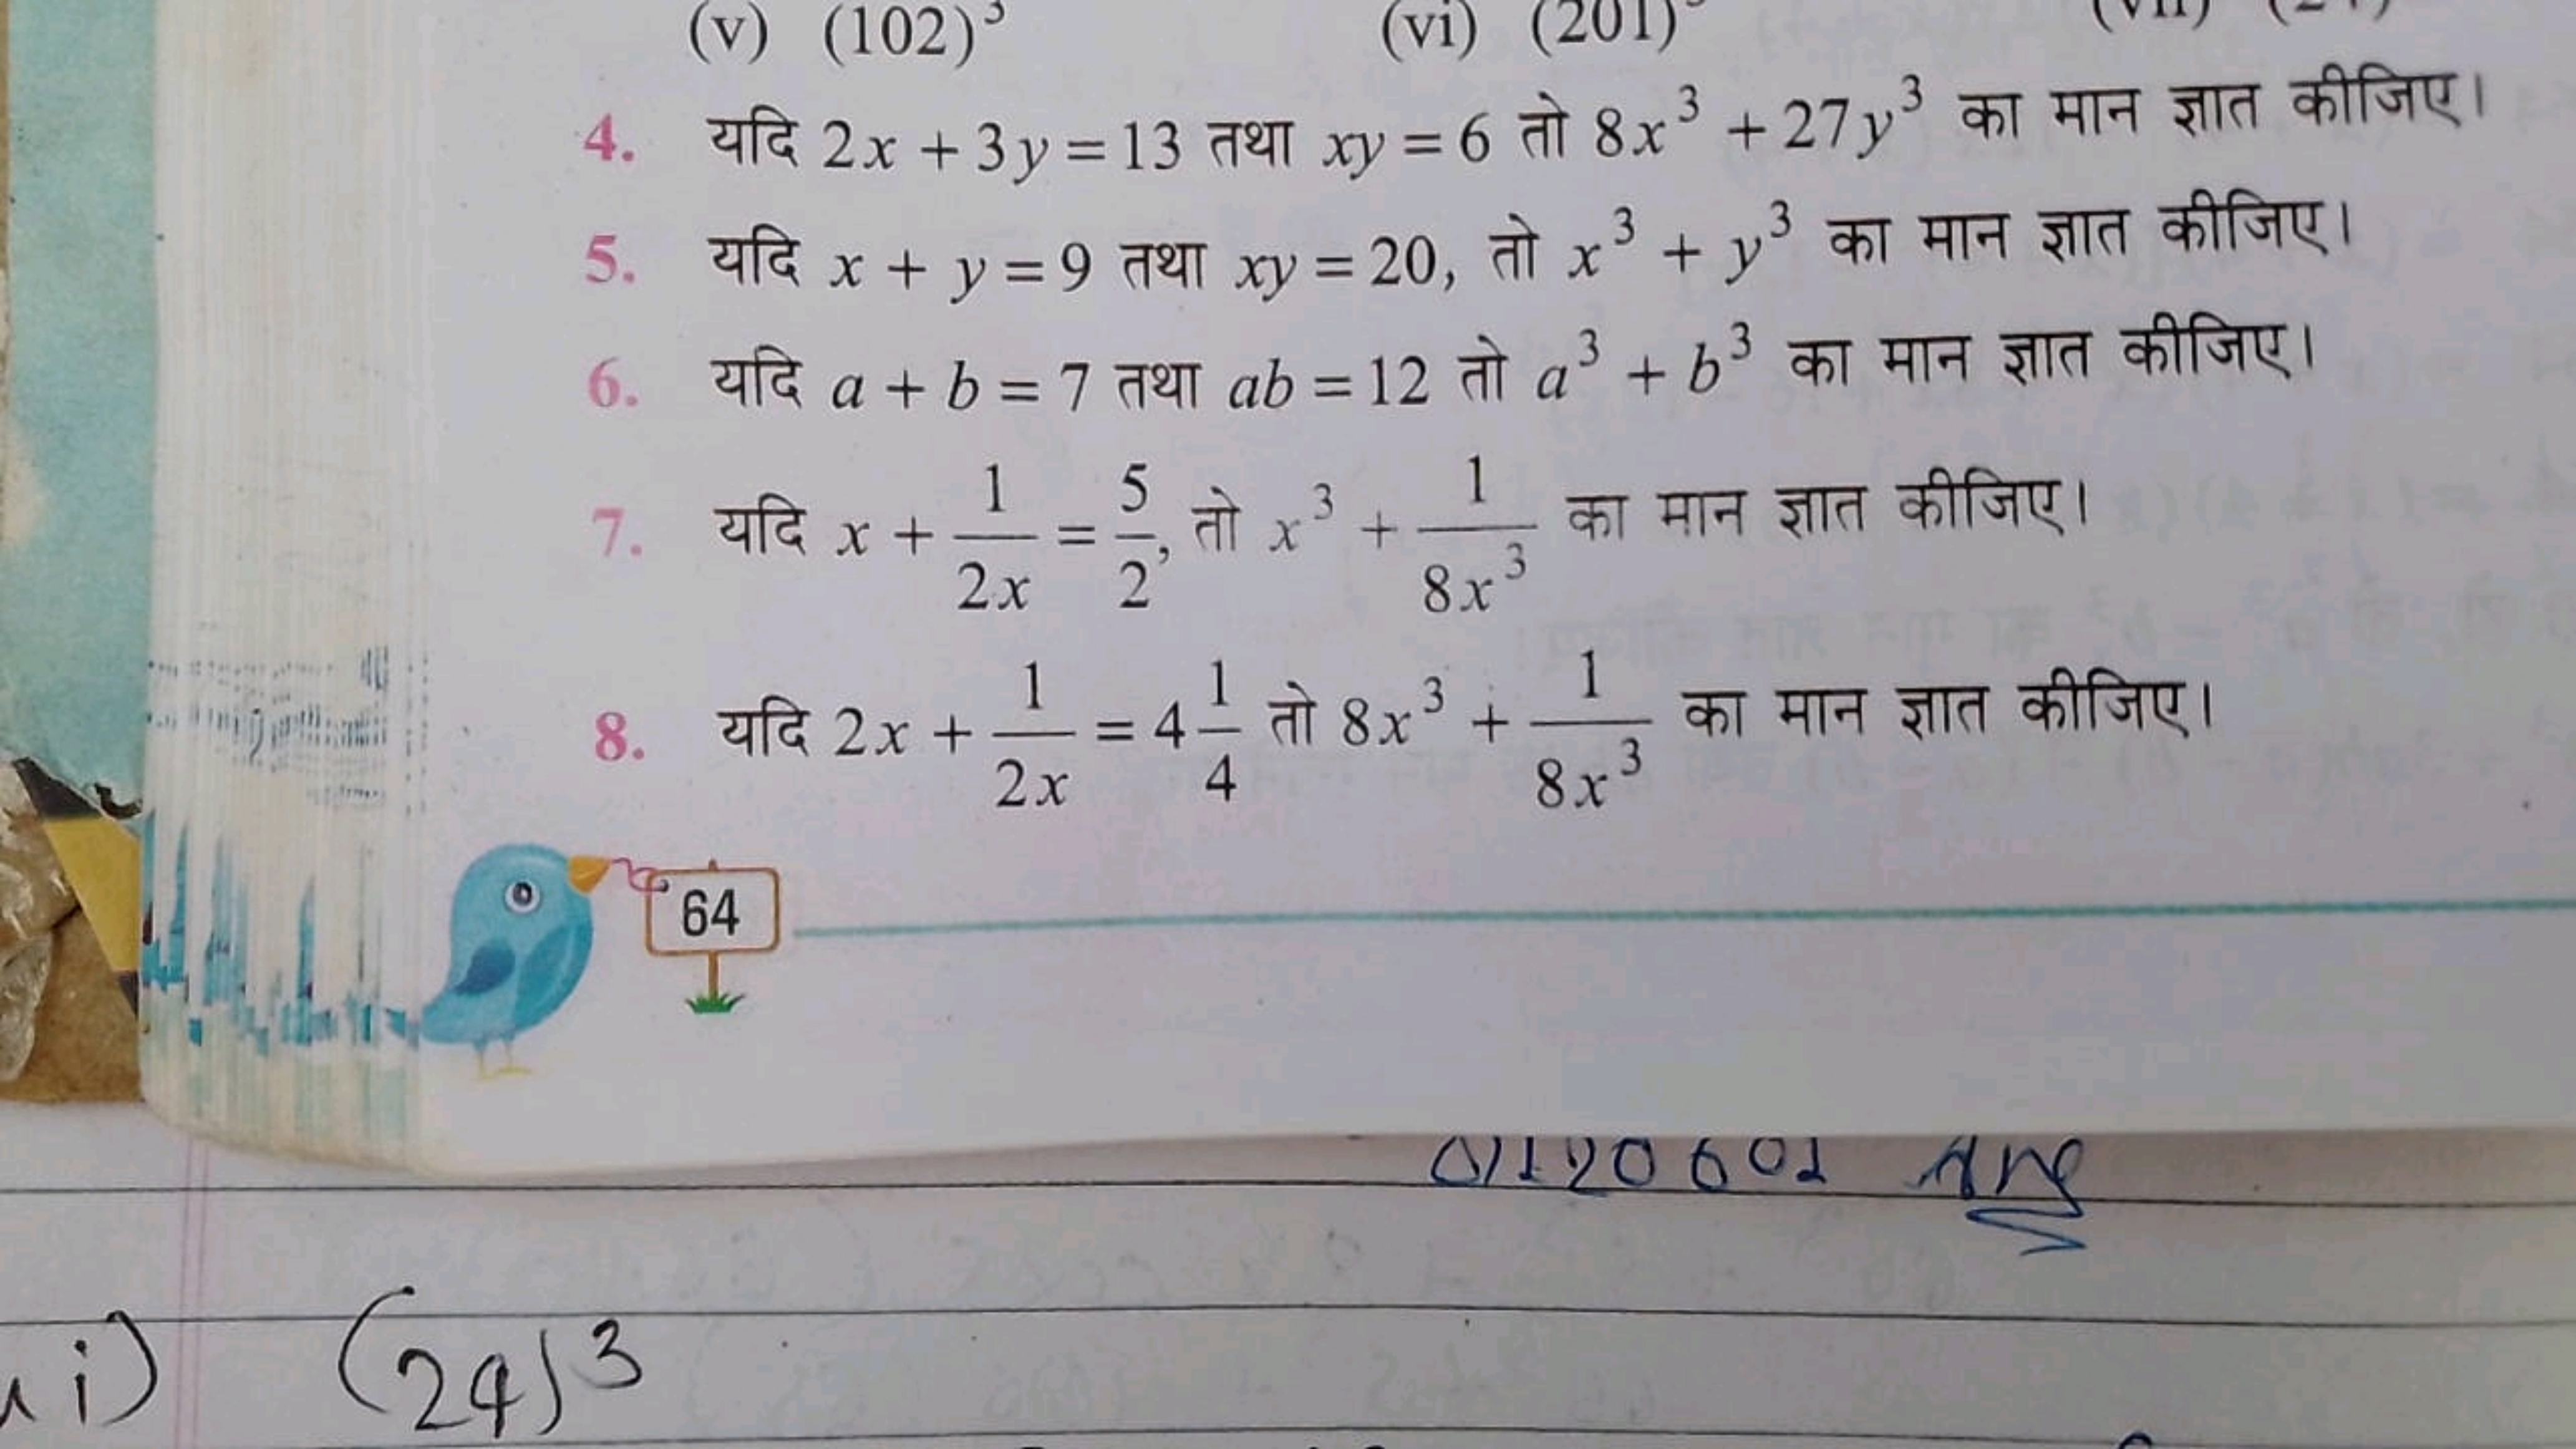 (v) (102)³ (vi) (201)
4. यदि 2x + 3y = 13 तथा xy = 6 तो 8x³ + 27y³ का मान ज्ञात कीजिए।
5. यदि x + y = 9 तथा xy = 20, तो x³ + y³ का मान ज्ञात कीजिए।
6. यदि a + b = 7 तथा ab = 12 तो a³ + b³ का मान ज्ञात कीजिए।
7. यदि x + 1/2x = 5/2, तो x³ + 1/8x³ का मान ज्ञात कीजिए।
8. यदि 2x + 1/2x = 4 1/4 तो 8x³ + 1/8x³ का मान ज्ञात कीजिए।
64
Ans
(24)³